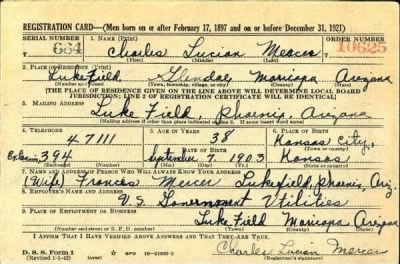 REGISTRATION CARD—(Men born on or after February 17, 1897 and on or before December 31, 1921)
SERIAL NUMBER 1. NAME (Print) ORDER NUMBER
664 Charles Lucian Mercer 10625
(First) (Middle) (Last)
2. PLACE OF RESIDENCE (Print)
Luke Field Glendale Maricopa Arizona
(Number and street) (Town, township, village, or city) (County) (State)
[THE PLACE OF RESIDENCE GIVEN ON THE LINE ABOVE WILL DETERMINE LOCAL BOARD
JURISDICTION; LINE 2 OF REGISTRATION CERTIFICATE WILL BE IDENTICAL]
3. MAILING ADDRESS
Luke Field, Phoenix, Arizona
[Mailing address if other than place indicated on line 2. If same insert word same]
4. TELEPHONE 5. AGE IN YEARS 6. PLACE OF BIRTH
47111 38 Kansas City,
DATE OF BIRTH (Town or county)
394 September 7, 1903 Kansas
(Exchange) (Number) (Mo.) (Day) (Yr.) (State or country)
7. NAME AND ADDRESS OF PERSON WHO WILL ALWAYS KNOW YOUR ADDRESS
(Wife) Frances Mercer Lukefield, Phoenix, Ariz.
8. EMPLOYER'S NAME AND ADDRESS
U.S. Government Utilities
9. PLACE OF EMPLOYMENT OR BUSINESS
Luke Field Maricopa Arizona
(Number and street or R. F. D. number) (Town) (County) (State)
I AFFIRM THAT I HAVE VERIFIED ABOVE ANSWERS AND THAT THEY ARE TRUE.
D. S. S. Form 1
(Revised 1-1-42) (over) GPO 16—21630-2 Charles Lucian Mercer
(Registrant's signature)